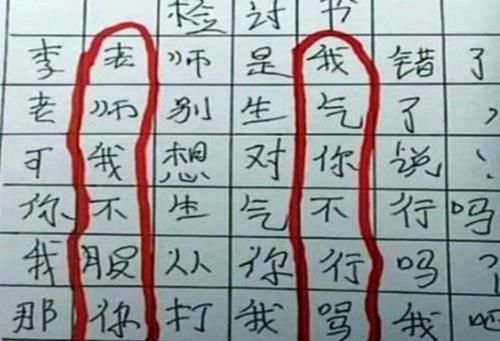 检讨书
李老师是我错了
老师别生气了,
可我想对你说:
你不生气不行吗
我服从你行吗?
那你打我骂我吧